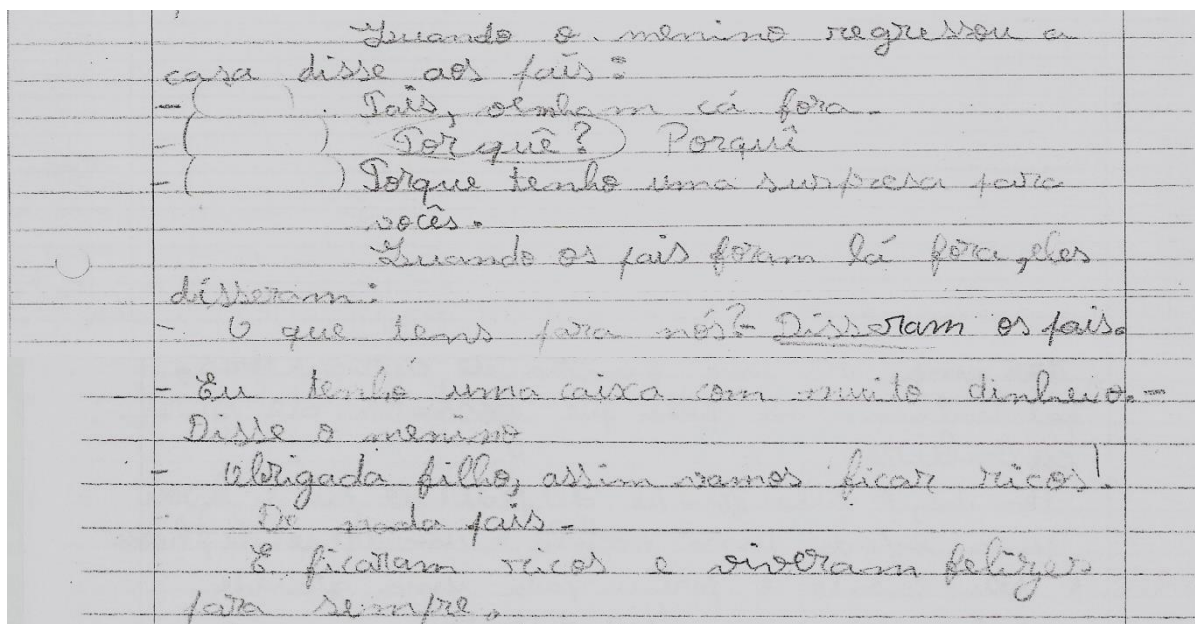 Quando o menino regressou a
casa disse aos pais:
-( ) Pais, venham cá fora.
-( ) Por quê?) Porquê
-( ) Porque tenho uma surpresa para
vocês.
Quando os pais foram lá fora, eles
disseram:
- O que tens para nós?- Disseram os pais.
- Eu tenho uma caixa com muito dinheiro.-
Disse o menino
- Obrigada filho, assim vamos ficar ricos!
De nada pais.
E ficaram ricos e viveram felizes
para sempre.